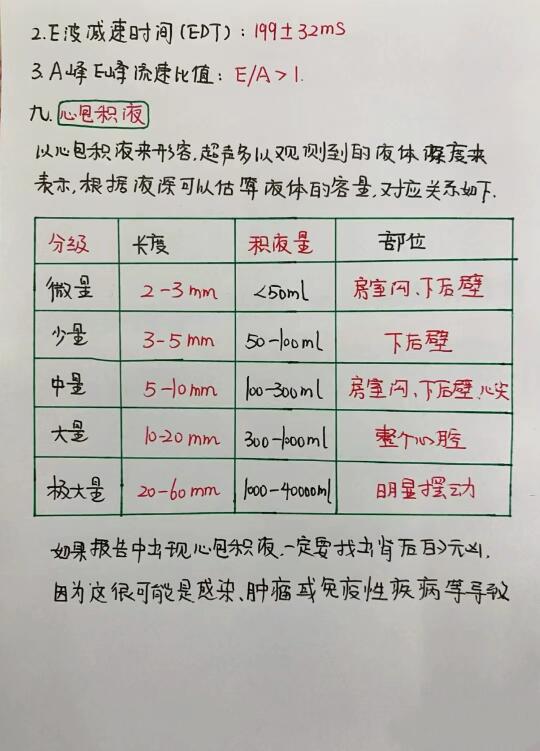 2.E波减速时间(EDT):199±32ms
3.A峰E峰流速比值:E/A>1.
九.心包积液
以心包积液来形容,超声多以观测到的液体深度来
表示,根据液深可以估算液体的容量,对应关系如下.
分级 长度 积液量 部位
微量 2-3mm <50ml 房室沟、下后壁
少量 3-5mm 50-100ml 下后壁
中量 5-10mm 100-300ml 房室沟、下后壁、心尖
大量 10-20mm 300-1000ml 整个心腔
极大量 20-60mm 1000-40000ml 明显摆动
如果报告中出现心包积液,一定要找出背后的元凶.
因为这很可能是感染、肿瘤或免疫性疾病等导致